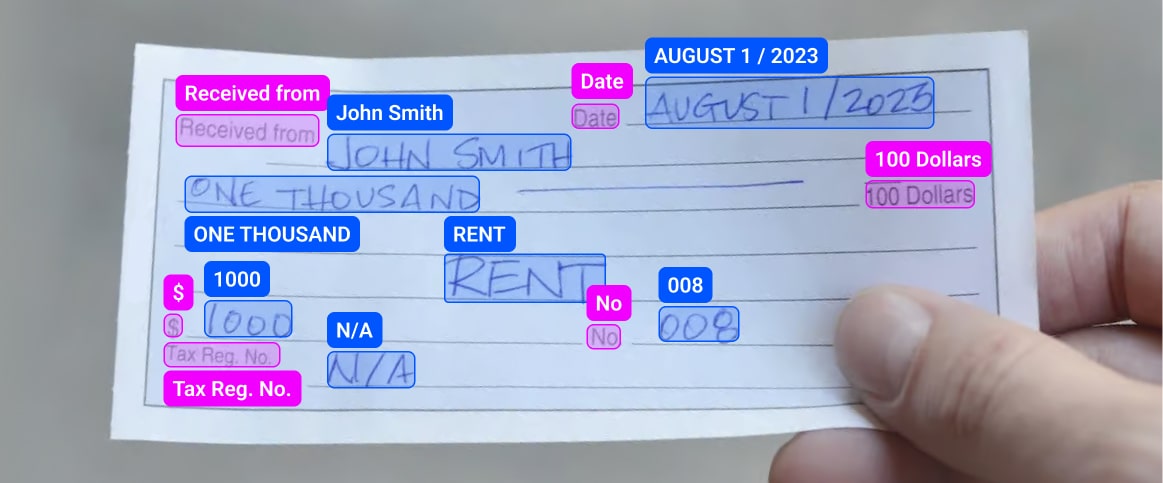 AUGUST 1 / 2023
Received from
Date
Received from
John Smith
Date
AUGUST 1/2023
JOHN SMITH
100 Dollars
ONE THOUSAND
100 Dollars
ONE THOUSAND
RENT
$
1000
RENT
No
008
$
1000
N/A
No
008
Tax Reg. No.
N/A
Tax Reg. No.